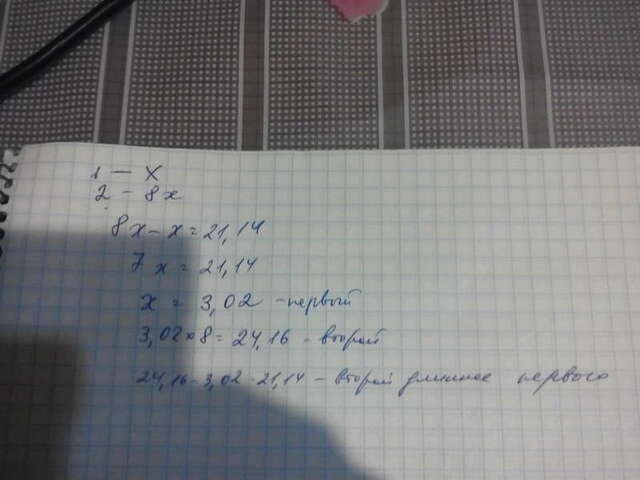 1 — x
2 - 8x
8x - x = 21,14
7x = 21,14
x = 3,02 - первый
3,02 × 8 = 24,16 - второй
24,16 - 3,02 = 21,14 - второй длиннее первого